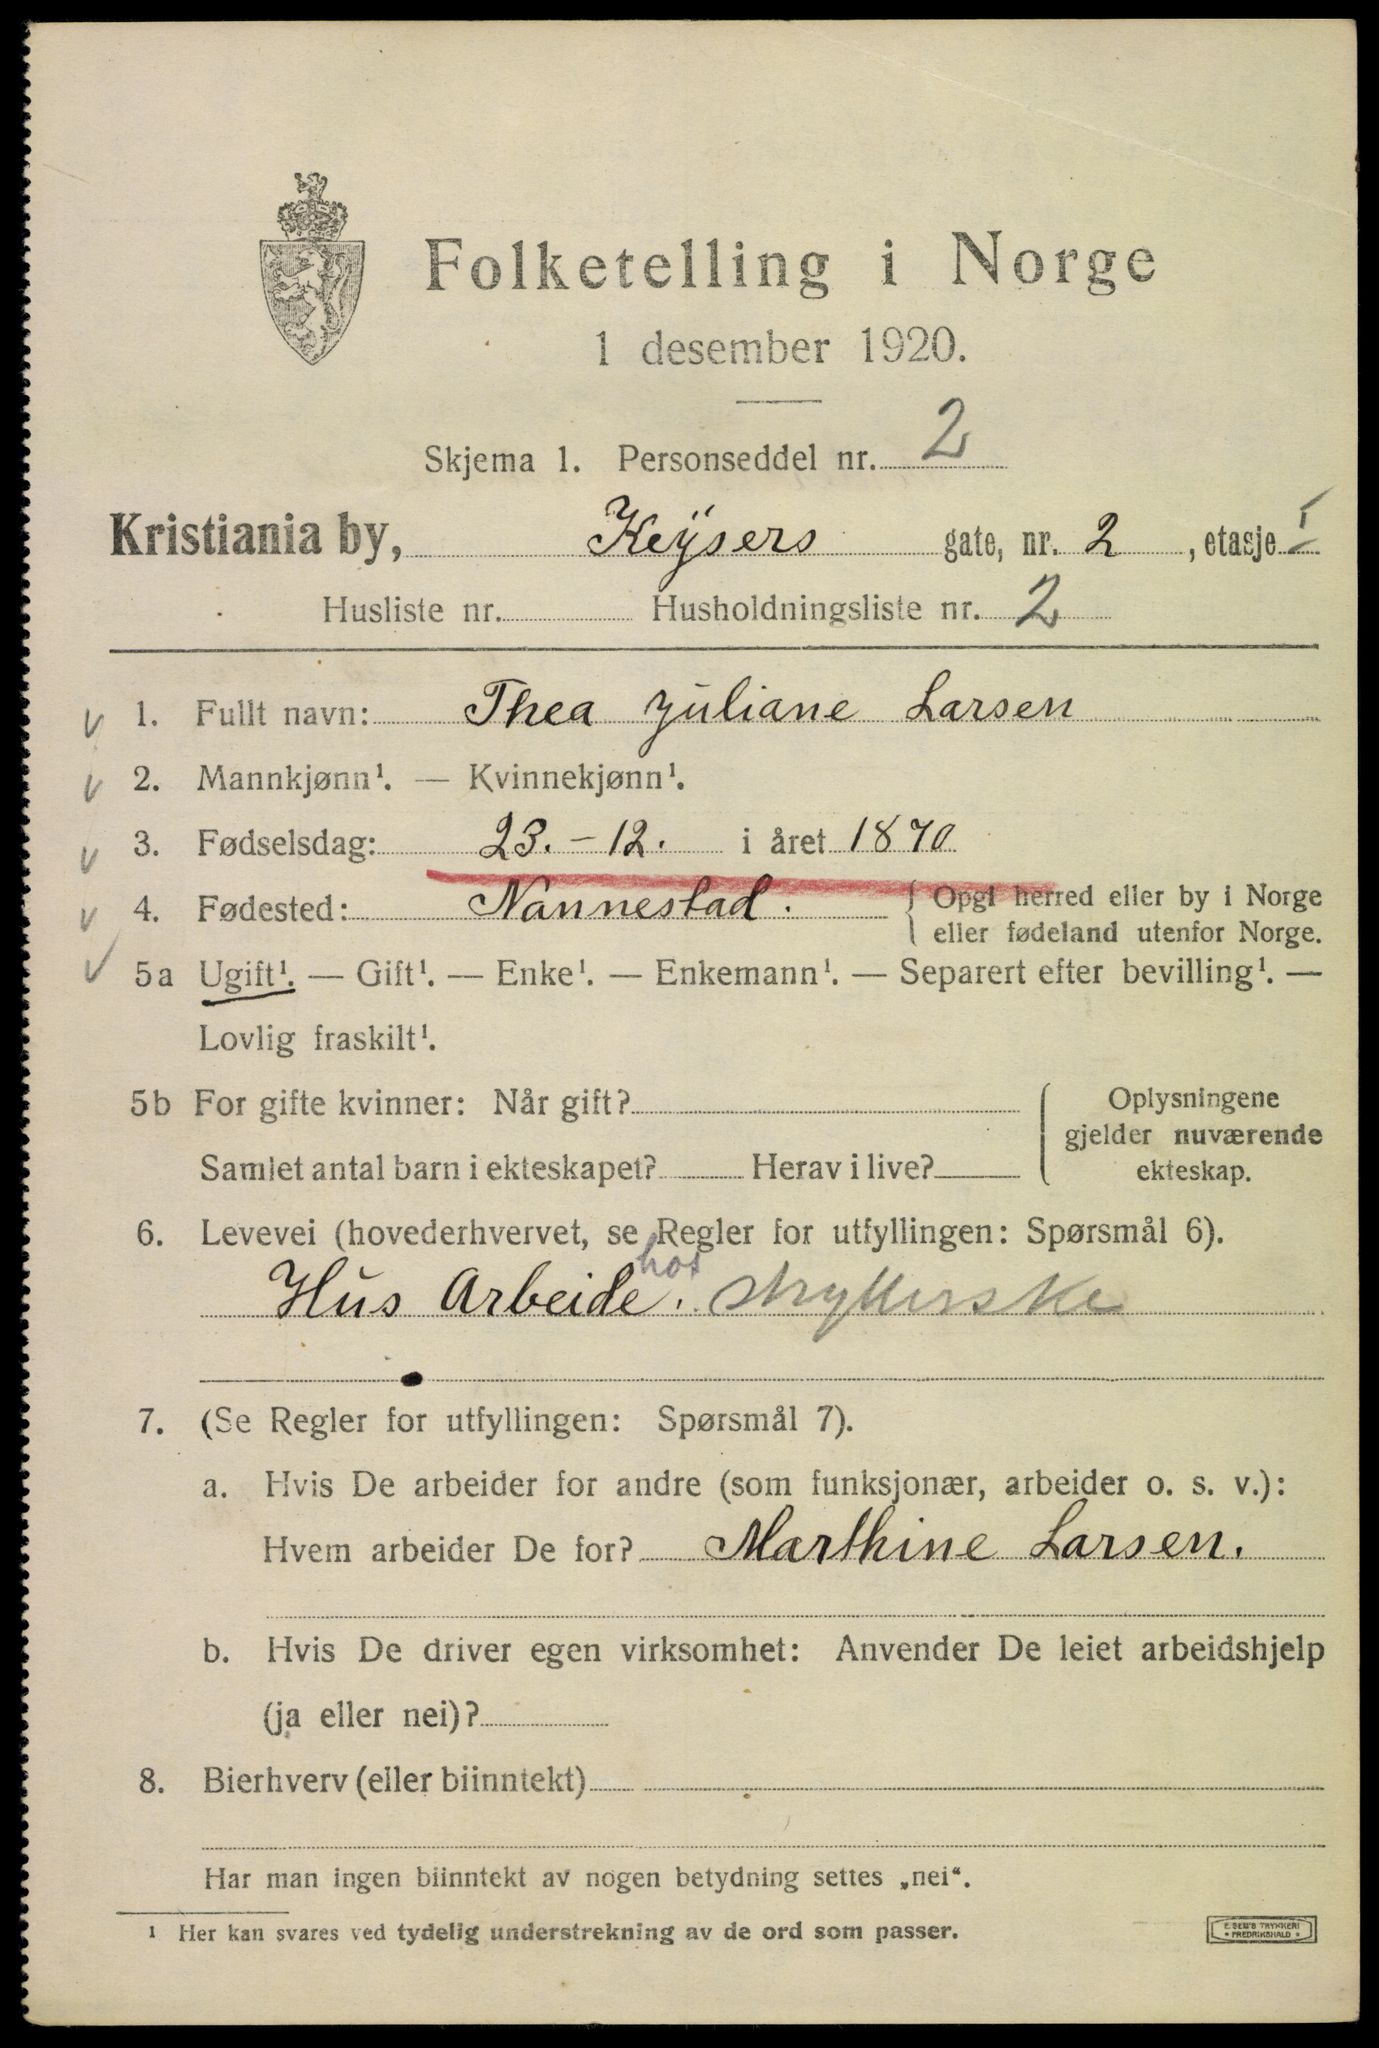 Folketelling i Norge
1 desember 1920.
Skjema 1. Personseddel nr. 2
Kristiania by, Keÿsers gate, nr. 2, etasje I
Husliste nr. Husholdningsliste nr. 2
v 1. Fullt navn: Thea Juliane Larsen
v 2. Mannkjønn¹. — Kvinnekjønn¹.
v 3. Fødselsdag: 23.-12. i året 1870
v 4. Fødested: Nannestad. { Opgi herred eller by i Norge
eller fødeland utenfor Norge.
v 5a Ugift¹. — Gift¹. — Enke¹. — Enkemann¹. — Separert efter bevilling¹. —
Lovlig fraskilt¹.
5b For gifte kvinner: Når gift? { Oplysningene
gjelder nuværende
Samlet antal barn i ekteskapet? Herav i live? ekteskap.
6. Levevei (hovederhvervet, se Regler for utfyllingen: Spørsmål 6).
Hus Arbeide. hos strykerske
7. (Se Regler for utfyllingen: Spørsmål 7).
a. Hvis De arbeider for andre (som funksjonær, arbeider o. s. v.):
Hvem arbeider De for? Marthine Larsen.
b. Hvis De driver egen virksomhet: Anvender De leiet arbeidshjelp
(ja eller nei)?
8. Bierhverv (eller biinntekt)
Har man ingen biinntekt av nogen betydning settes „nei“.
¹ Her kan svares ved tydelig understrekning av de ord som passer.
E. SEM'S TRYKKERI
• FREDRIKSHALD •